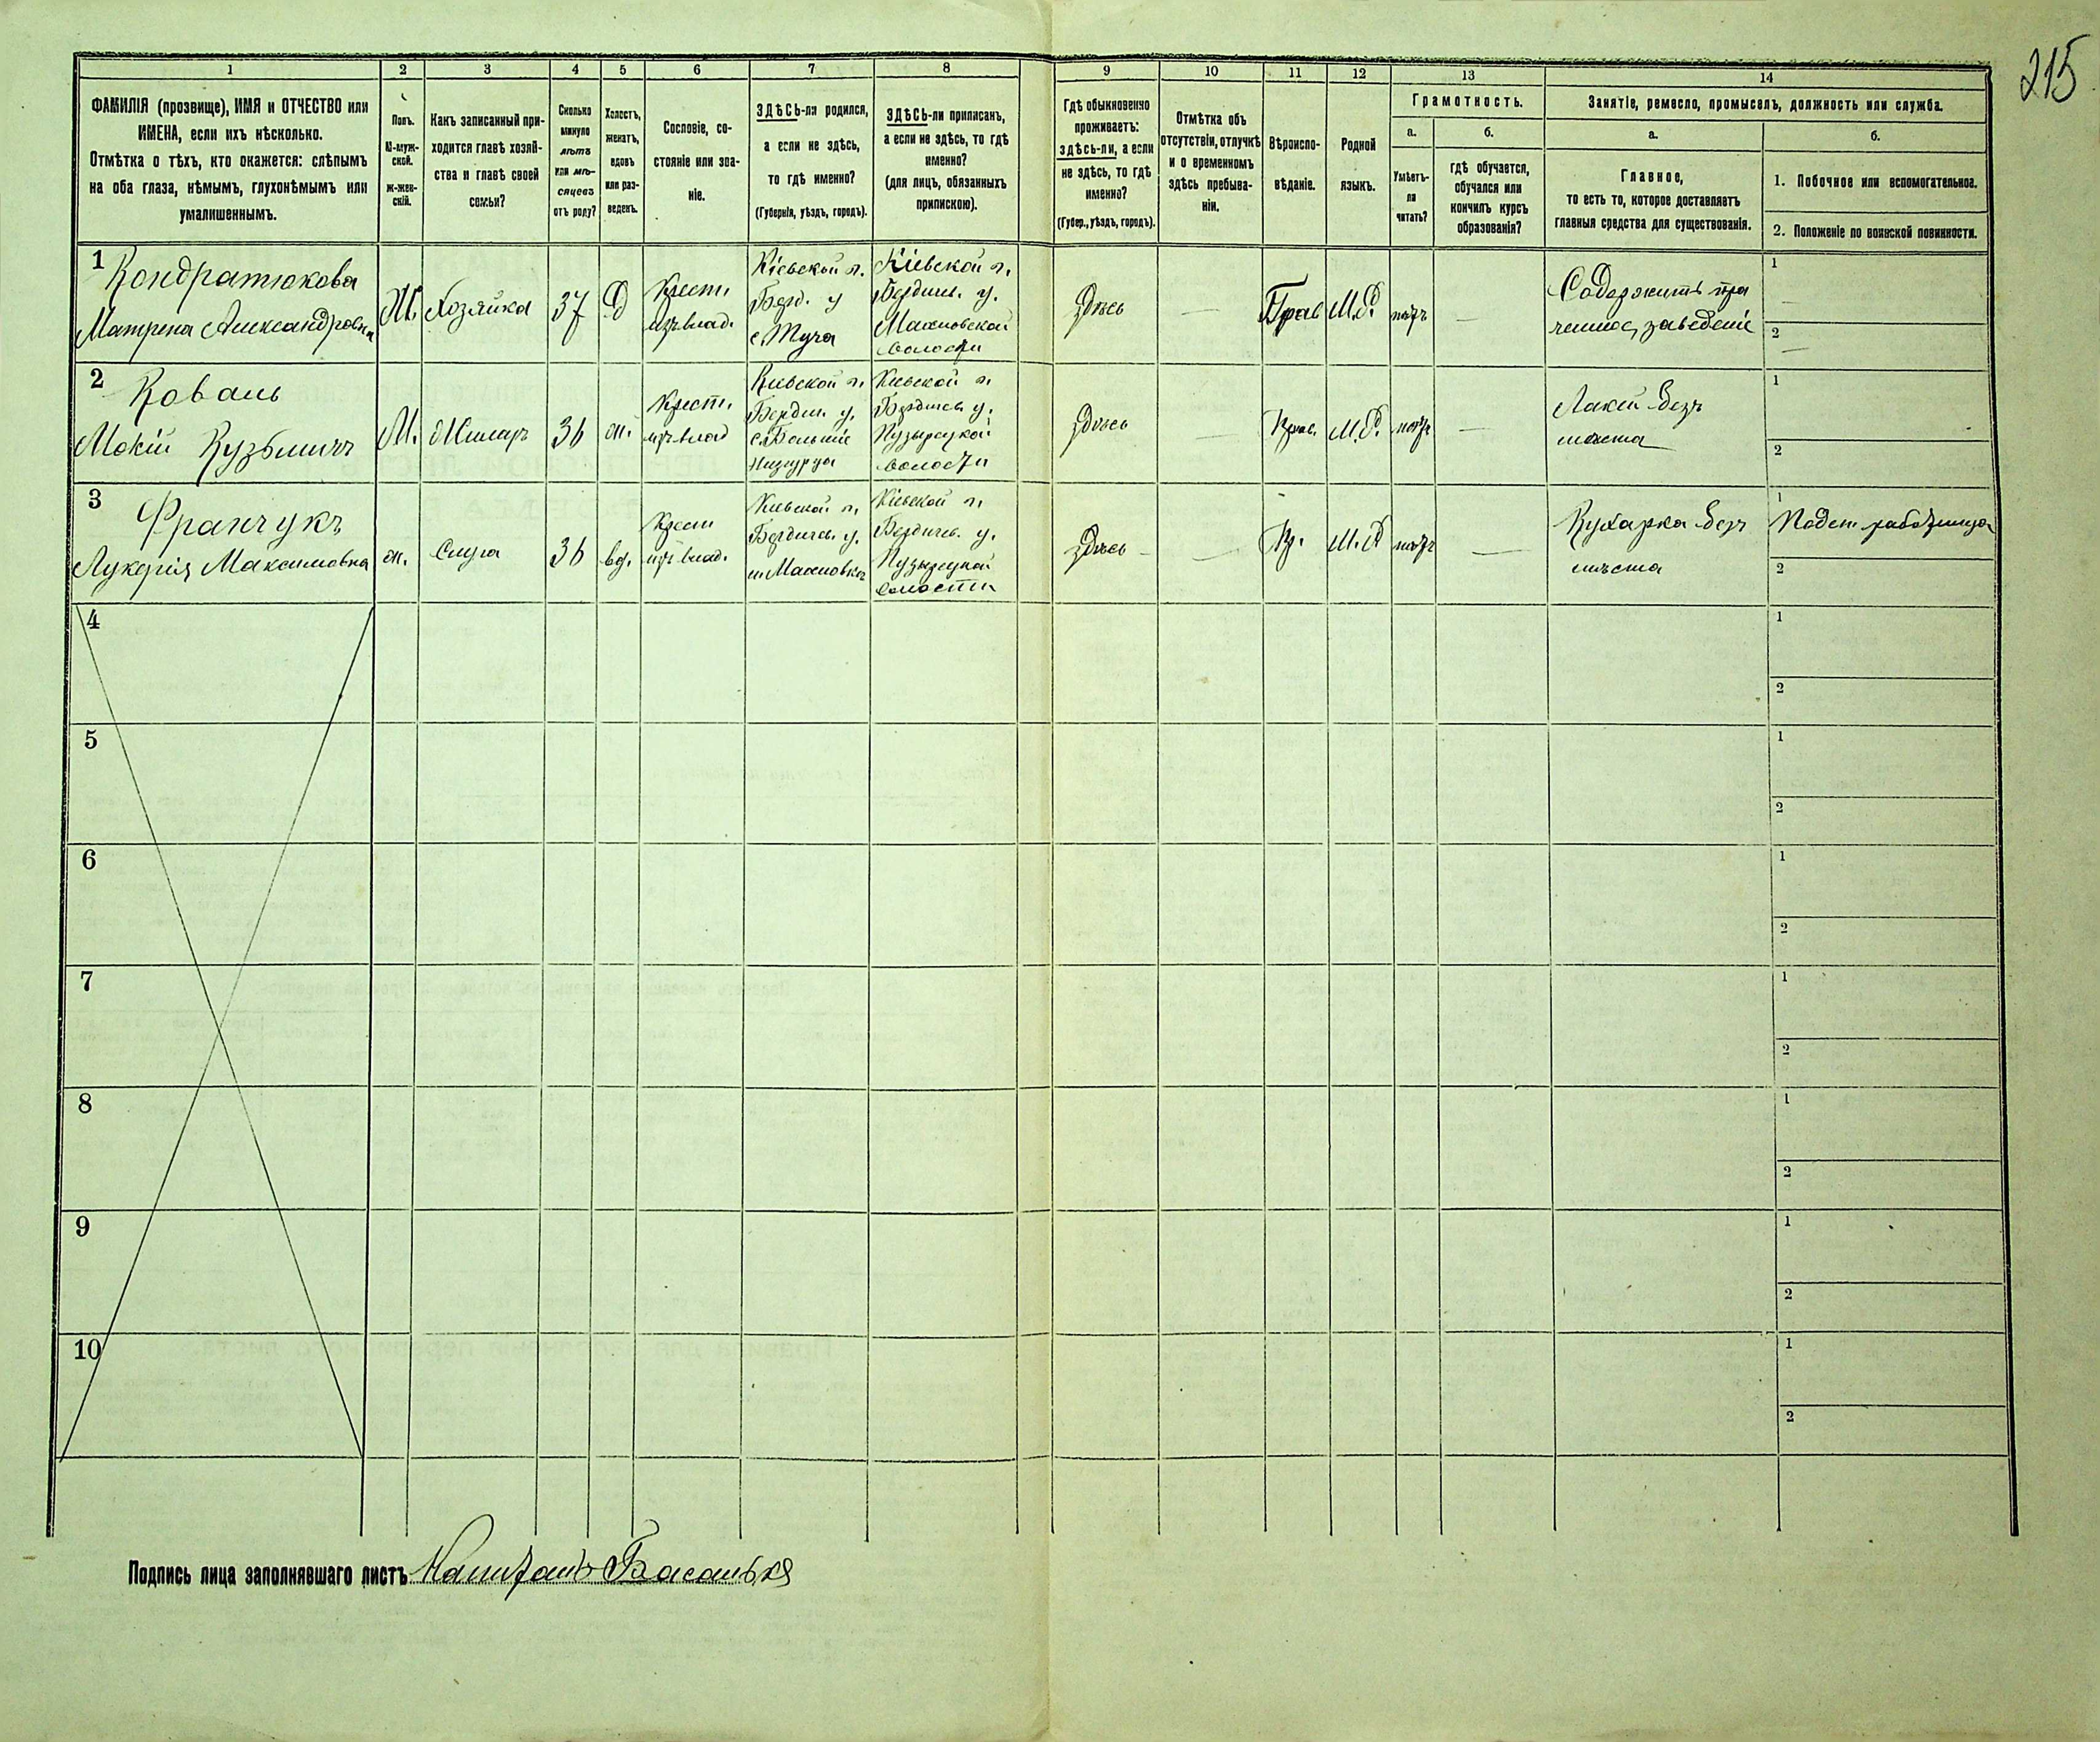 215
1
2
3
4
5
6
7
8
9
10
11
12
13
14
ФАМИЛІЯ (прозвище), ИМЯ и ОТЧЕСТВО или
ИМЕНА, если ихъ нѣсколько.
Отмѣтка о тѣхъ, кто окажется: слѣпымъ
на оба глаза, нѣмымъ, глухонѣмымъ или
умалишеннымъ.
Полъ.
М-муж-
ской.
Ж-жен-
скій.
Какъ записанный при-
ходится главѣ хозяй-
ства и главѣ своей
семьи?
Сколько
минуло
лѣтъ
или мѣ-
сяцевъ
отъ роду?
Холостъ,
женатъ,
вдовъ
или раз-
веденъ.
Сословіе, со-
стояніе или зва-
ніе.
ЗДѢСЬ-ли родился,
а если не здѣсь,
то гдѣ именно?
(Губернія, уѣздъ, городъ).
ЗДѢСЬ-ли приписанъ,
а если не здѣсь, то гдѣ
именно?
(для лицъ, обязанныхъ
припискою).
Гдѣ обыкновенно
проживаетъ:
здѣсь-ли, а если
не здѣсь, то гдѣ
именно?
(Губер., уѣздъ, городъ).
Отмѣтка объ
отсутствіи, отлучкѣ
и о временномъ
здѣсь пребыва-
ніи.
Вѣроиспо-
вѣданіе.
Родной
языкъ.
Грамотность.
а.
Умѣетъ-
ли
читать?
б.
гдѣ обучается,
обучался или
кончилъ курсъ
образованія?
Занятіе, ремесло, промыселъ, должность или служба.
а.
Главное,
то есть то, которое доставляетъ
главныя средства для существованія.
б.
1. Побочное или вспомогательное.
2. Положеніе по воинской повинности.
1
Кондратюкова
Матрена Александровна
Хозяйка
37
Д
Крест.
изъ влад.
Кіевской г.
Берд. у
с. Туча
Кіевской г.
Бердич. у.
Махновской
волости
здѣсь
—
Прав
М.Р.
нетъ
—
Содержитъ пра
чешное заведеніе
1
2
2
Коваль
Мокій Кузьмичъ
М.
Жилецъ
36
ж.
Крест.
изъ влад
Кіевской г.
Бердич. у.
с. Большіе
Низгурцы
Кіевской г.
Бердичев. у.
Пузырецкой
волости
здѣсь
—
Прав.
М.Р.
нетъ
—
Лакей безъ
мѣста
1
2
3
Франчукъ
Лукерія Максимовна
ж.
Слуга
36
вд.
Крест
изъ влад.
Кіевской г.
Бердичев. у.
м. Махновкѣ
Кіевской г.
Бердичев. у.
Пузырецкой
волости
здѣсь
—
Пр.
М.Р
нетъ
—
Кухарка безъ
мѣста
1
Поден. работница
2
4
1
2
5
1
2
6
1
2
7
1
2
8
1
2
9
1
2
10
1
2
Подпись лица заполнявшаго листъ